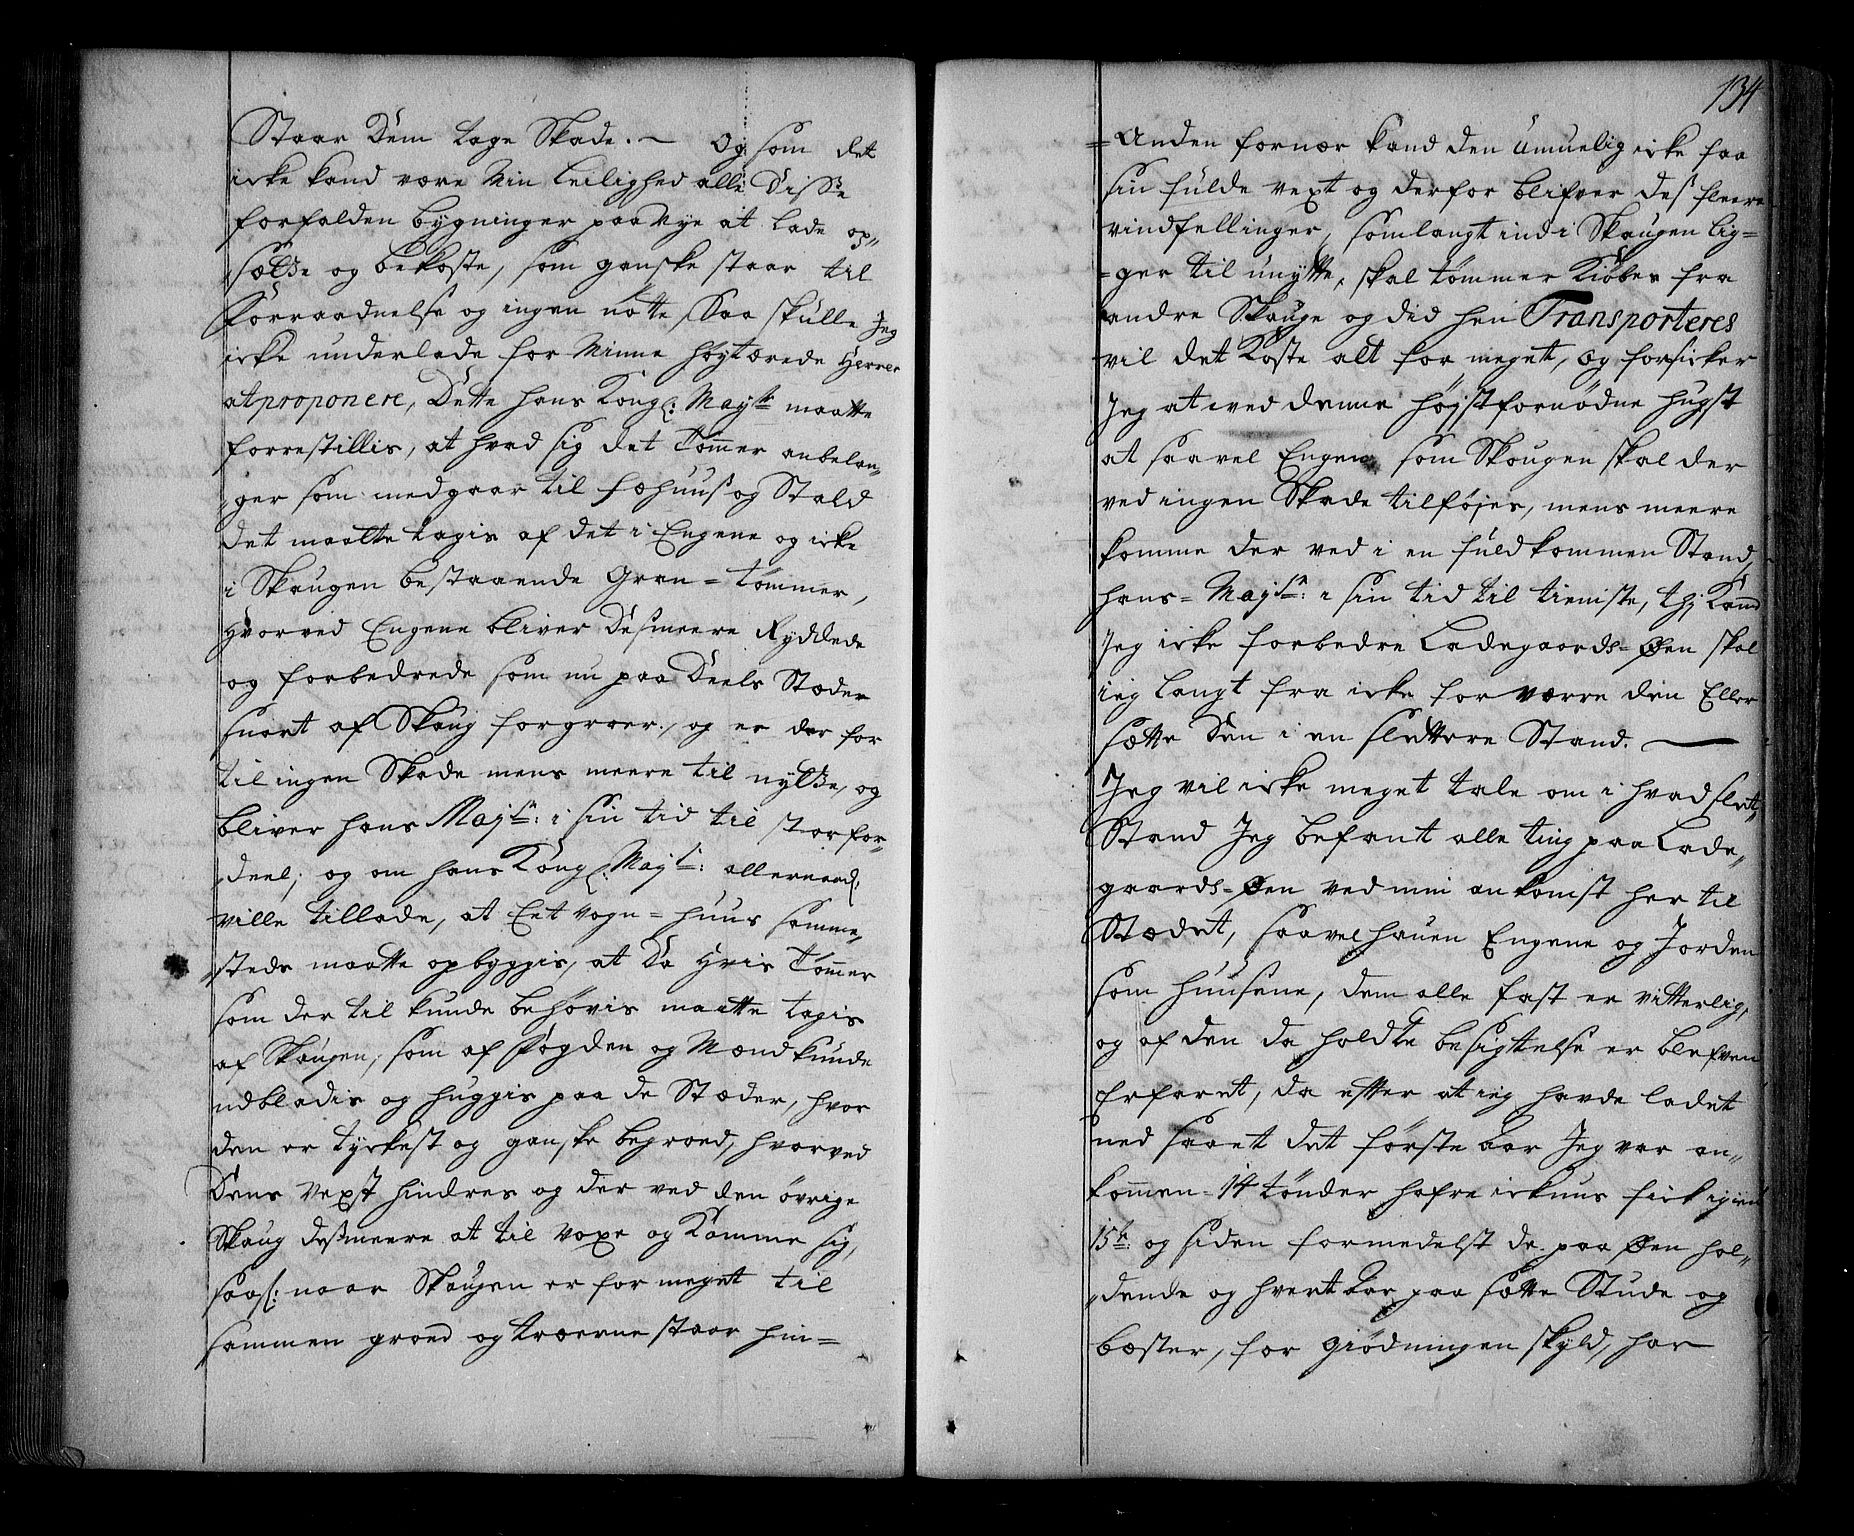 Staar dem tage Skade. ~ Og som det
icke kand være Min Leilighed alle disse
forfalden bygninger paa Nye at lade op„
„sætze og bekoste, som ganske staar til
Forraadnelse og ingen nøtte, Saa skulle Jeg
icke underlade for Minne høytærede Herrer
at proponere, Dette hans Kongl: Mayts maatte
forrestillis, at hvad sig det Tømmer anbelan„
„ger som medgaar til Fæhuus og Stald
det maatte tagis af det i Engene og icke
i Skaugen bestaaende Gran = tømmer,
Hvorved Engene bliver desmeere Ryddede
og forbedrede som nu paa deels Stæder
snart af Skaug forgroer, og er der for
til ingen Skade mens meere til nytze, og
bliver hans Mayts: i sin tid til stor for„
„deel; og om hans Kongl: Mayts: allernaad:
ville tillade, at Eet vogn = huus samme„
„steds maatte opbyggis, at da Hvis Tømmer
som der til kunde behøvis maatte tagis
af Skaugen, som af Fogden og Mænd kunde
udbladis og huggis paa de Stæder, hvor
den er tyckest og ganske begroed, hvorved
dens Vext hindres og der ved den øvrige
Skaug desmeere at til voxe og komme sig,
saasl: naar Skaugen er for meget til
sammen groed og træerne staar hin=
134
= Anden fornær kand den umuelig icke faa
sin fulde vext og derfor blifver des fleere
vindfellinger, som langt ind i Skaugen lig=
= ger til unytte, skal tømmer Kiøbes fra
andre Skauge og did hen Transporteres
vil det Koste alt for meget, og forsicker
Jeg at ved denne højstfornødne hugst
at saavel Engen som Skougen skal der
ved ingen Skade tilføjes, mens meere
komme der ved i en fuldkommen Stand,
hans = Mayts: i sin tid til tieniste, thj Kand
Jeg icke forbedre Ladegaards = Øen skal
ieg langt fra icke forværre den Eller
sætte den i en slettere Stand. —
Jeg vil icke meget tale om i hvad slet„
Stand Jeg befant alle ting paa Lade„
gaards = Øen ved min ankomst her til
Stædet, saavel hauen Engene og Jorden
som Huusene, dem alle fast er vitterlig,
og af den da holdte besigttelse er blefven
Erfaret, da efter at ieg havde ladet
ned saaet det første aar Jeg var an„
kommen = 14 tønder hafre ickuns fick igien
15tr: og siden formedelst de paa Øen hol„
„dende og hvert aar paa sætte Stude og
bæster, for giødningen skyld, har